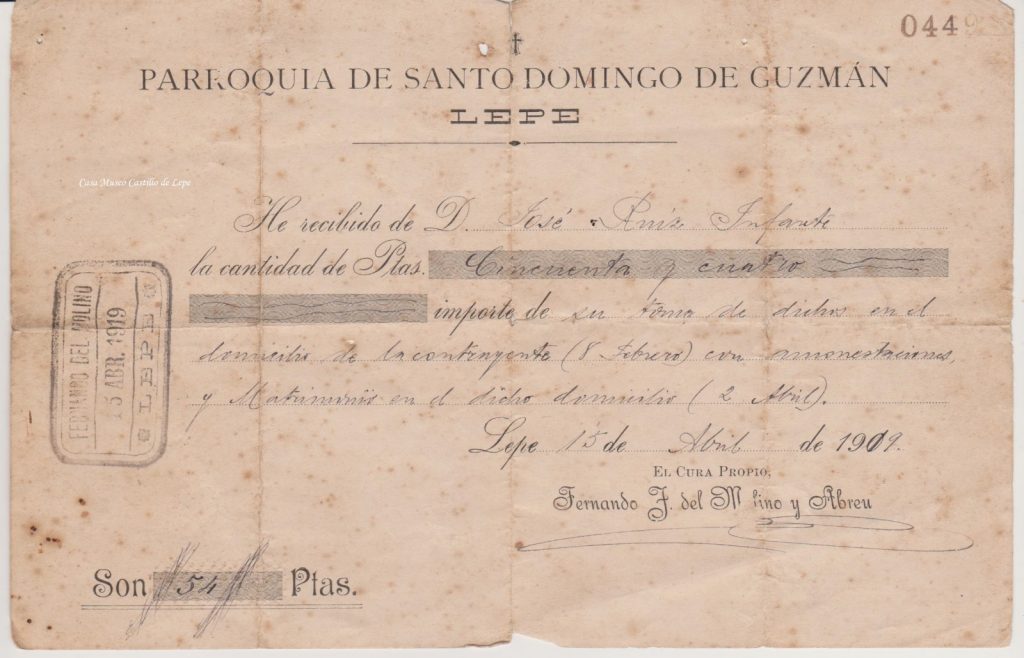 0449
PARROQUIA DE SANTO DOMINGO DE GUZMÁN
LEPE
Casa Museo Castillo de Lepe
He recibido de D. José Ruiz Infante
la cantidad de Ptas. Cincuenta y cuatro
importe de su toma de dichos en el
domicilio de la contrayente (8 Febrero) con amonestaciones,
y Matrimonio en el dicho domicilio (2 Abril).
Lepe 15 de Abril de 1919.
EL CURA PROPIO,
Fernando J. del M lino y Abreu
FERNANDO DEL MOLINO
15 ABR. 1919
LEPE
Son 54 Ptas.